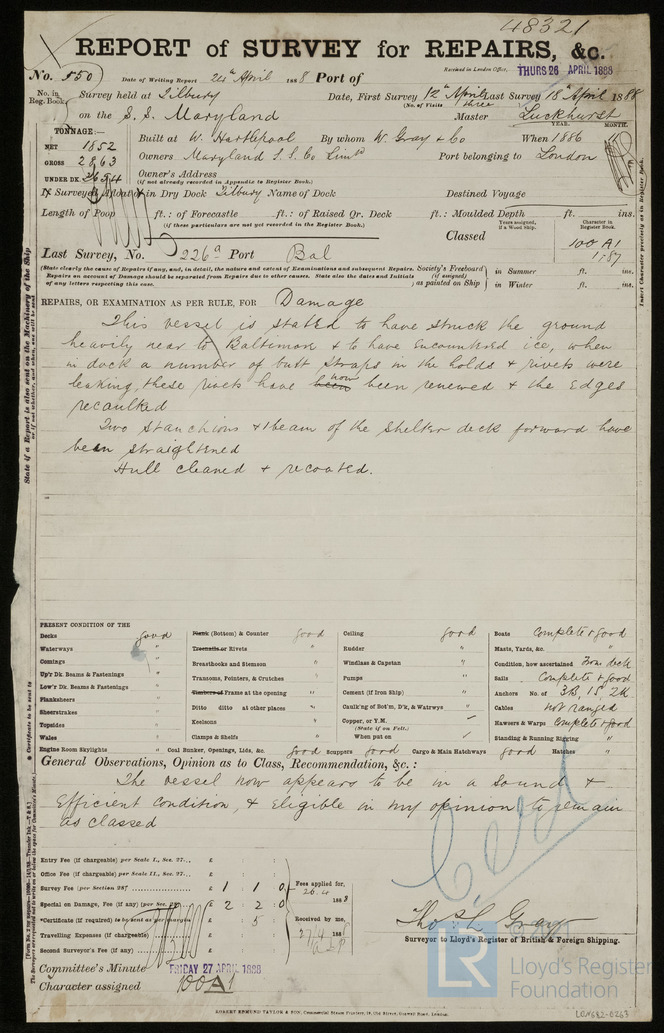 48321
REPORT of SURVEY for REPAIRS, &c.
No. 550 Date of Writing Report 24th April 1888 Port of Received in London Office, THURS 26 APRIL 1888
No. in Reg. Book. Survey held at Tilbury Date, First Survey 12th April Last Survey 18th April 1888
(No. of Visits three
on the S. S. Maryland Master Luckhurst
TONNAGE:— YEAR. MONTH.
NET 1852 Built at W. Hartlepool By whom W. Gray & Co When 1886
GROSS 2863 Owners Maryland S. S. Co Port belonging to London
UNDER DK. 2654 Owner's Address
(if not already recorded in Appendix to Register Book.)
If Surveyed Afloat or in Dry Dock Tilbury Name of Dock Destined Voyage
Length of Poop ft.: of Forecastle ft.: of Raised Qr. Deck ft.: Moulded Depth ft. ins.
(if these particulars are not yet recorded in the Register Book.)
Years assigned, if a Wood Ship. Character in Register Book.
Classed 100 A1
1.87
Last Survey, No. 226a Port Bal
(State clearly the cause of Repairs if any, and, in detail, the nature and extent of Examinations and subsequent Repairs. Society's Freeboard in Summer ft. ins.
Repairs on account of Damage should be separated from Repairs due to other causes. State also the dates and Initials (if assigned)
of any letters respecting this case. as painted on Ship in Winter ft. ins.
REPAIRS, OR EXAMINATION AS PER RULE, FOR Damage
This vessel is stated to have struck the ground
heavily near to Baltimore & to have encountered ice, when
in dock a number of butt straps in the holds & rivets were
leaking, these rivets have now been renewed & the edges
recaulked
Two stanchions & 1 beam of the shelter deck forward have
been straightened
Hull cleaned & recoated.
State if a Report is also sent on the Machinery of the Ship
or if not, whether, and when, one will be sent
Insert Character precisely as in Register Book.
PRESENT CONDITION OF THE
Decks good Plank (Bottom) & Counter good Ceiling good Boats Complete & good
Waterways " Treenails or Rivets " Rudder " Masts, Yards, &c. "
Comings " Breasthooks and Stemson " Windlass & Capstan " Condition, how ascertained From deck
Up'r Dk. Beams & Fastenings " Transoms, Pointers, & Crutches " Pumps " Sails Complete & good
Low'r Dk. Beams & Fastenings " Timbers of Frame at the opening " Cement (if Iron Ship) " Anchors No. of 3B, 1S, 2K
Planksheers " Ditto ditto at other places " Caulk'ng of Bot'm, D'k, & Watrwys " Cables not ranged
Sheerstrakes " Keelsons " Copper, or Y.M. Hawsers & Warps Complete & good
Topsides " Clamps & Shelfs " (State if on Felt.) Standing & Running Rigging "
Wales " When put on
Engine Room Skylights " Coal Bunker, Openings, Lids, &c. good Scuppers good Cargo & Main Hatchways good Hatches "
General Observations, Opinion as to Class, Recommendation, &c.:
The vessel now appears to be in a sound &
efficient condition, & eligible in my opinion to remain
as classed
Entry Fee (if chargeable) per Scale I., Sec. 27... £ : :
Office Fee (if chargeable) per Scale II., Sec. 27... £ : :
Survey Fee (per Section 28) £ 1 : 1 : 0 Fees applied for,
26.4 1888
Special or Damage, Fee (if any) (per Sec. 28) £ 2 : 2 : 0
Certificate (if required) to be sent as per margin £ : 5 : Received by me,
Travelling Expenses (if chargeable) £ : : 27/4 188
Second Surveyor's Fee (if any) £ : :
Thos. L. Gray
Surveyor to Lloyd's Register of British & Foreign Shipping.
Committee's Minute FRIDAY 27 APRIL 1888
Character assigned 100A1
LR Lloyd's Register
Foundation
ROBERT EDMUND TAYLOR & SON, Commercial Steam Printers, 19, Old Street, Goswell Road, London.
LON682-0263